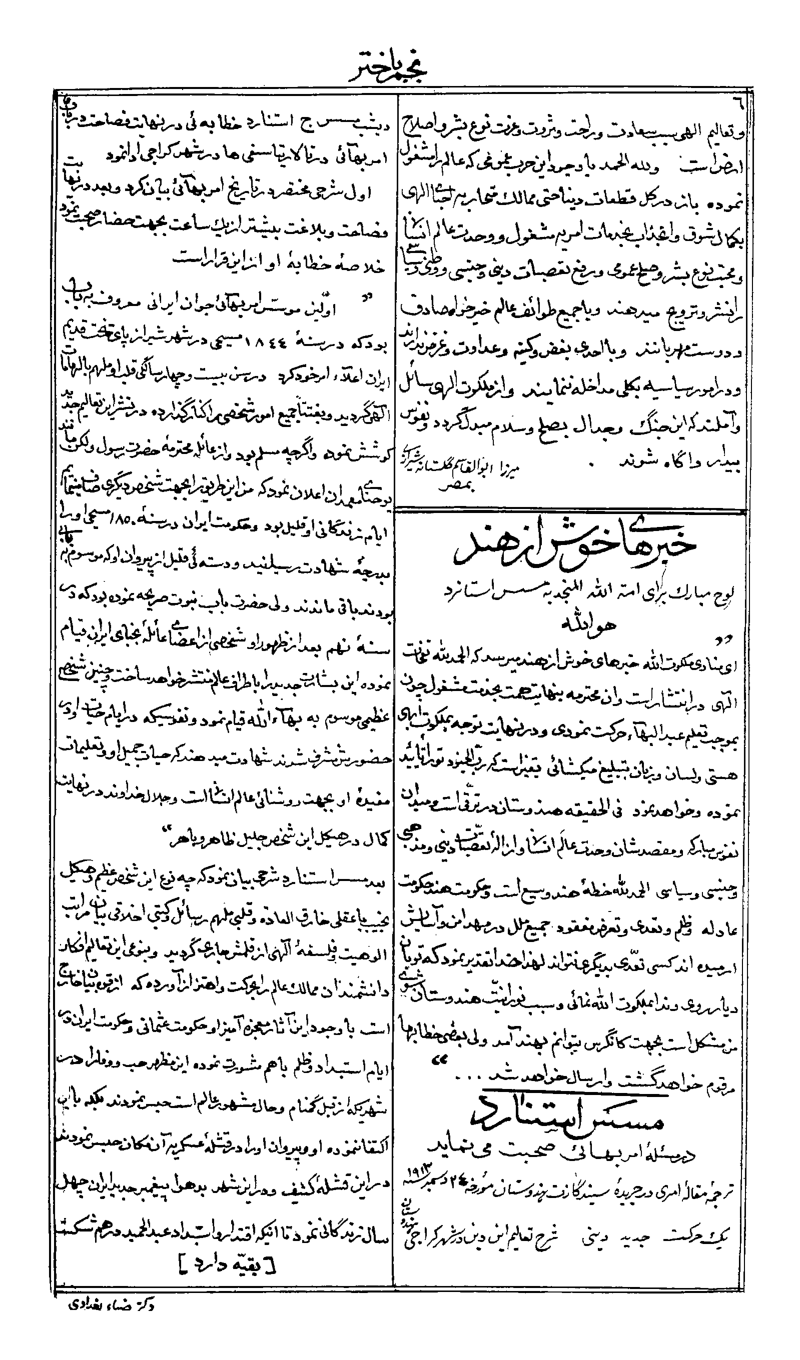 نجم باختر
٦
و تعالیم الهی سبب سعادت و راحت و ثروت و عزت نوع بشر و اصلاح
ارض است وللّه الحمد با وجود این حرب عمومی که عالم را مشغول
نموده باز در کل قطعات دنیا حتی ممالک متحاربه احبای الهی
بکمال شوق و انجذاب بخدمات امریه مشغول و وحدت عالم انسانی
و محبت نوع بشر و صلح عمومی و رفع تعصبات دینی و جنسی و وطنی و سیاسی
را نشر و ترویج میدهند و با جمیع طوائف عالم خیرخواه صادق
و دوست مهربانند و با احدی بغض و کینه و عداوت و غرض ندارند
و در امور سیاسیه بکلی مداخله ننمایند و از ملکوت الهی سائل
و آملند که این جنگ و جدال بصلح و سلام مبدل گردد و نفوس
بیدار و آگاه شوند .
میرزا ابوالقاسم گلستانه شیرازی
بمصر
خبرهای خوش از هند
لوح مبارک برای امة اللّه المنجذبه مسس استانرد
هواللّه
" ای منادی ملکوت اللّه خبرهای خوش از هند میرسد که الحمدللّه نفحات
الهی در انتشار است و ان محترمه بنهایت همت بخدمت مشغول چون
بموجب تعلیم عبدالبهاء حرکت نمودی و در نهایت توجه بملکوت ابهی
هستی و لسان و زبان بتبلیغ میگشائی یقین است که رب الجنود تو را تأیید
نموده و خواهد نمود فی الحقیقه هندوستان در ترقی است و میدان
نفوس مبارکه و مقصدشان وحدت عالم انسانی و ازاله تعصبات دینی و مذهبی
و جنسی و سیاسی الحمدللّه خطهٔ هند وسیع است و حکومت هند حکومت
عادله و ظلم و تعدی و تعرض مفقود جمیع ملل در مهد امن و آسایش
ارمیده اند کسی تعدّی بدیگری نتواند لهذا خدا تقدیر نمود که تو بآن
دیار روی و ندا بملکوت اللّه نمائی و سبب نورانیت هندوستان شوی
من مشکل است بجهت کانگرس بتوانم بهند آمد ولی بعضی خطابه‌ها
مرقوم خواهد گشت و ارسال خواهد شد . . . "
مسس استنارد
در مسئلهٔ امر بهائی صحبت می نماید
ترجمهٔ مقالهٔ امری در جریدهٔ سیند گازت هندوستان مؤرخهٔ ٢٤ دسمبر سنه ١٩١٣
یک حرکت جدید دینی شرح تعلیم این دین در شهر کراچی
دیشب مسس ج استنارد خطابه ئی در نهایت فصاحت در باب
امر بهائی در تالار تیاسفی ها در شهر کراچی ادا نمود
اول شرحی مختصر در تاریخ امر بهائی بیان کرد و بعد در نهایت
فصاحت و بلاغت بیشتر از یک ساعت بجهت حضار صحبت نمود
خلاصهٔ خطابهٔ او از این قرار است
" اوّلین مؤسس امر بهائی جوان ایرانی معروف به باب
بود که در سنهٔ ١٨٤٤ مسیحی در شهر شیراز پای تخت قدیم
ایران اعلان امر خود کرد در سن بیست و چهار سالگی قلب او ملهم بالهامات
الهی گردید و بغتتاً جمیع امور شخصی را کنار گذارده در نشر این تعالیم جدید
کوشش نموده و اگرچه مسلم بود و از عائلهٔ محترمهٔ حضرت رسول ولکن مانند
یوحنای معمدان اعلان نمود که من این طریق را بجهت شخص دیگری صاف مینمایم
ایام زندگانی او قلیل بود و حکومت ایران در سنهٔ ١٨٥٠ مسیحی او را
بدرجهٔ شهادت رسانید و دسته ئی قلیل از پیروان او که موسوم به بابی
بودند باقی ماندند ولی حضرت باب نبوت صریحه نموده بود که در
سنهٔ نهم بعد از ظهور او شخصی از اعضای عائلهٔ نجبای ایران قیام
نموده این بشارت جدید را باطراف عالم منتشر خواهد ساخت و چنین شخص
عظیمی موسوم به بهاءاللّه قیام نمود و نفوسیکه در ایام حیات او در
حضورش مشرف شدند شهادت میدهند که حیات جمیل او و تعلیمات
مفیدهٔ او بجهت روشنائی عالم انسانی است و جلال خداوند در نهایت
کمال در هیکل این شخص جلیل ظاهر و باهر "
بعد مسس استنارد شرحی بیان نمود که چه نوع این شخص عظیم و هیکل
نجیب با عقلی خارق العاده و قلبی ملهم رسائل کتبی اخلاقی بیان مراتب
الوهیت و فلسفهٔ الهی از قلمش جاری گردید و بنوعی این تعالیم افکار
دانشمندان ممالک عالم را بحرکت و اهتزاز آورده که از قوهٔ بیان خارج
است با وجود این آثار معجزه آمیز او حکومت عثمانی و حکومت ایران در
ایام استبداد و ظلم باهم مشورت نموده این مظهر حب و وفا را در
شهریکه از قبل گمنام و حال مشهور عالم است حبس نمودند بلکه باین
اکتفا ننموده او و پیروان او را در قشلهٔ عسکریه آن مکان حبس نمودند
در این قشلهٔ کثیف و در این شهر بد هوا پیغمبر جدید ایران چهل
سال زندگانی نمود تا آنکه اقتدار و استبداد عبدالحمید درهم شکست
[ بقیّه دارد ]
دکتر ضیاء بغدادی